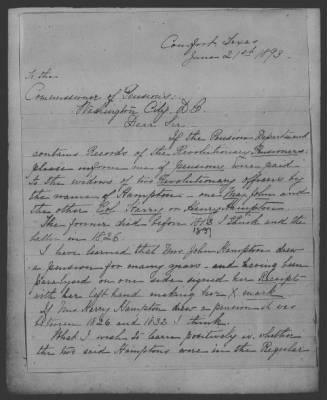 Comfort, Texas
June 21st 1893.
To the
Commissioner of Pensions:
Washington City, D.C.
Dear Sir:
If the Pension Department
contains Records of the Revolutionary Pensioners
please inform me if pensions were paid
to the widows of two Revolutionary officers by
the name of Hampton - one Maj. John and
the other Col. Harry or Henry Hampton.
The former died before I think and the
latter in 1826.
I have learned that Mrs. John Hampton drew
a pension for many years - and having been
paralyzed on one side signed her Receipt
with her left hand making her X mark
If Mrs. Harry Hampton drew a pension it was
between 1826 and 1832 I think.
What I wish to learn positively is whether
the two said Hamptons were in the Regular